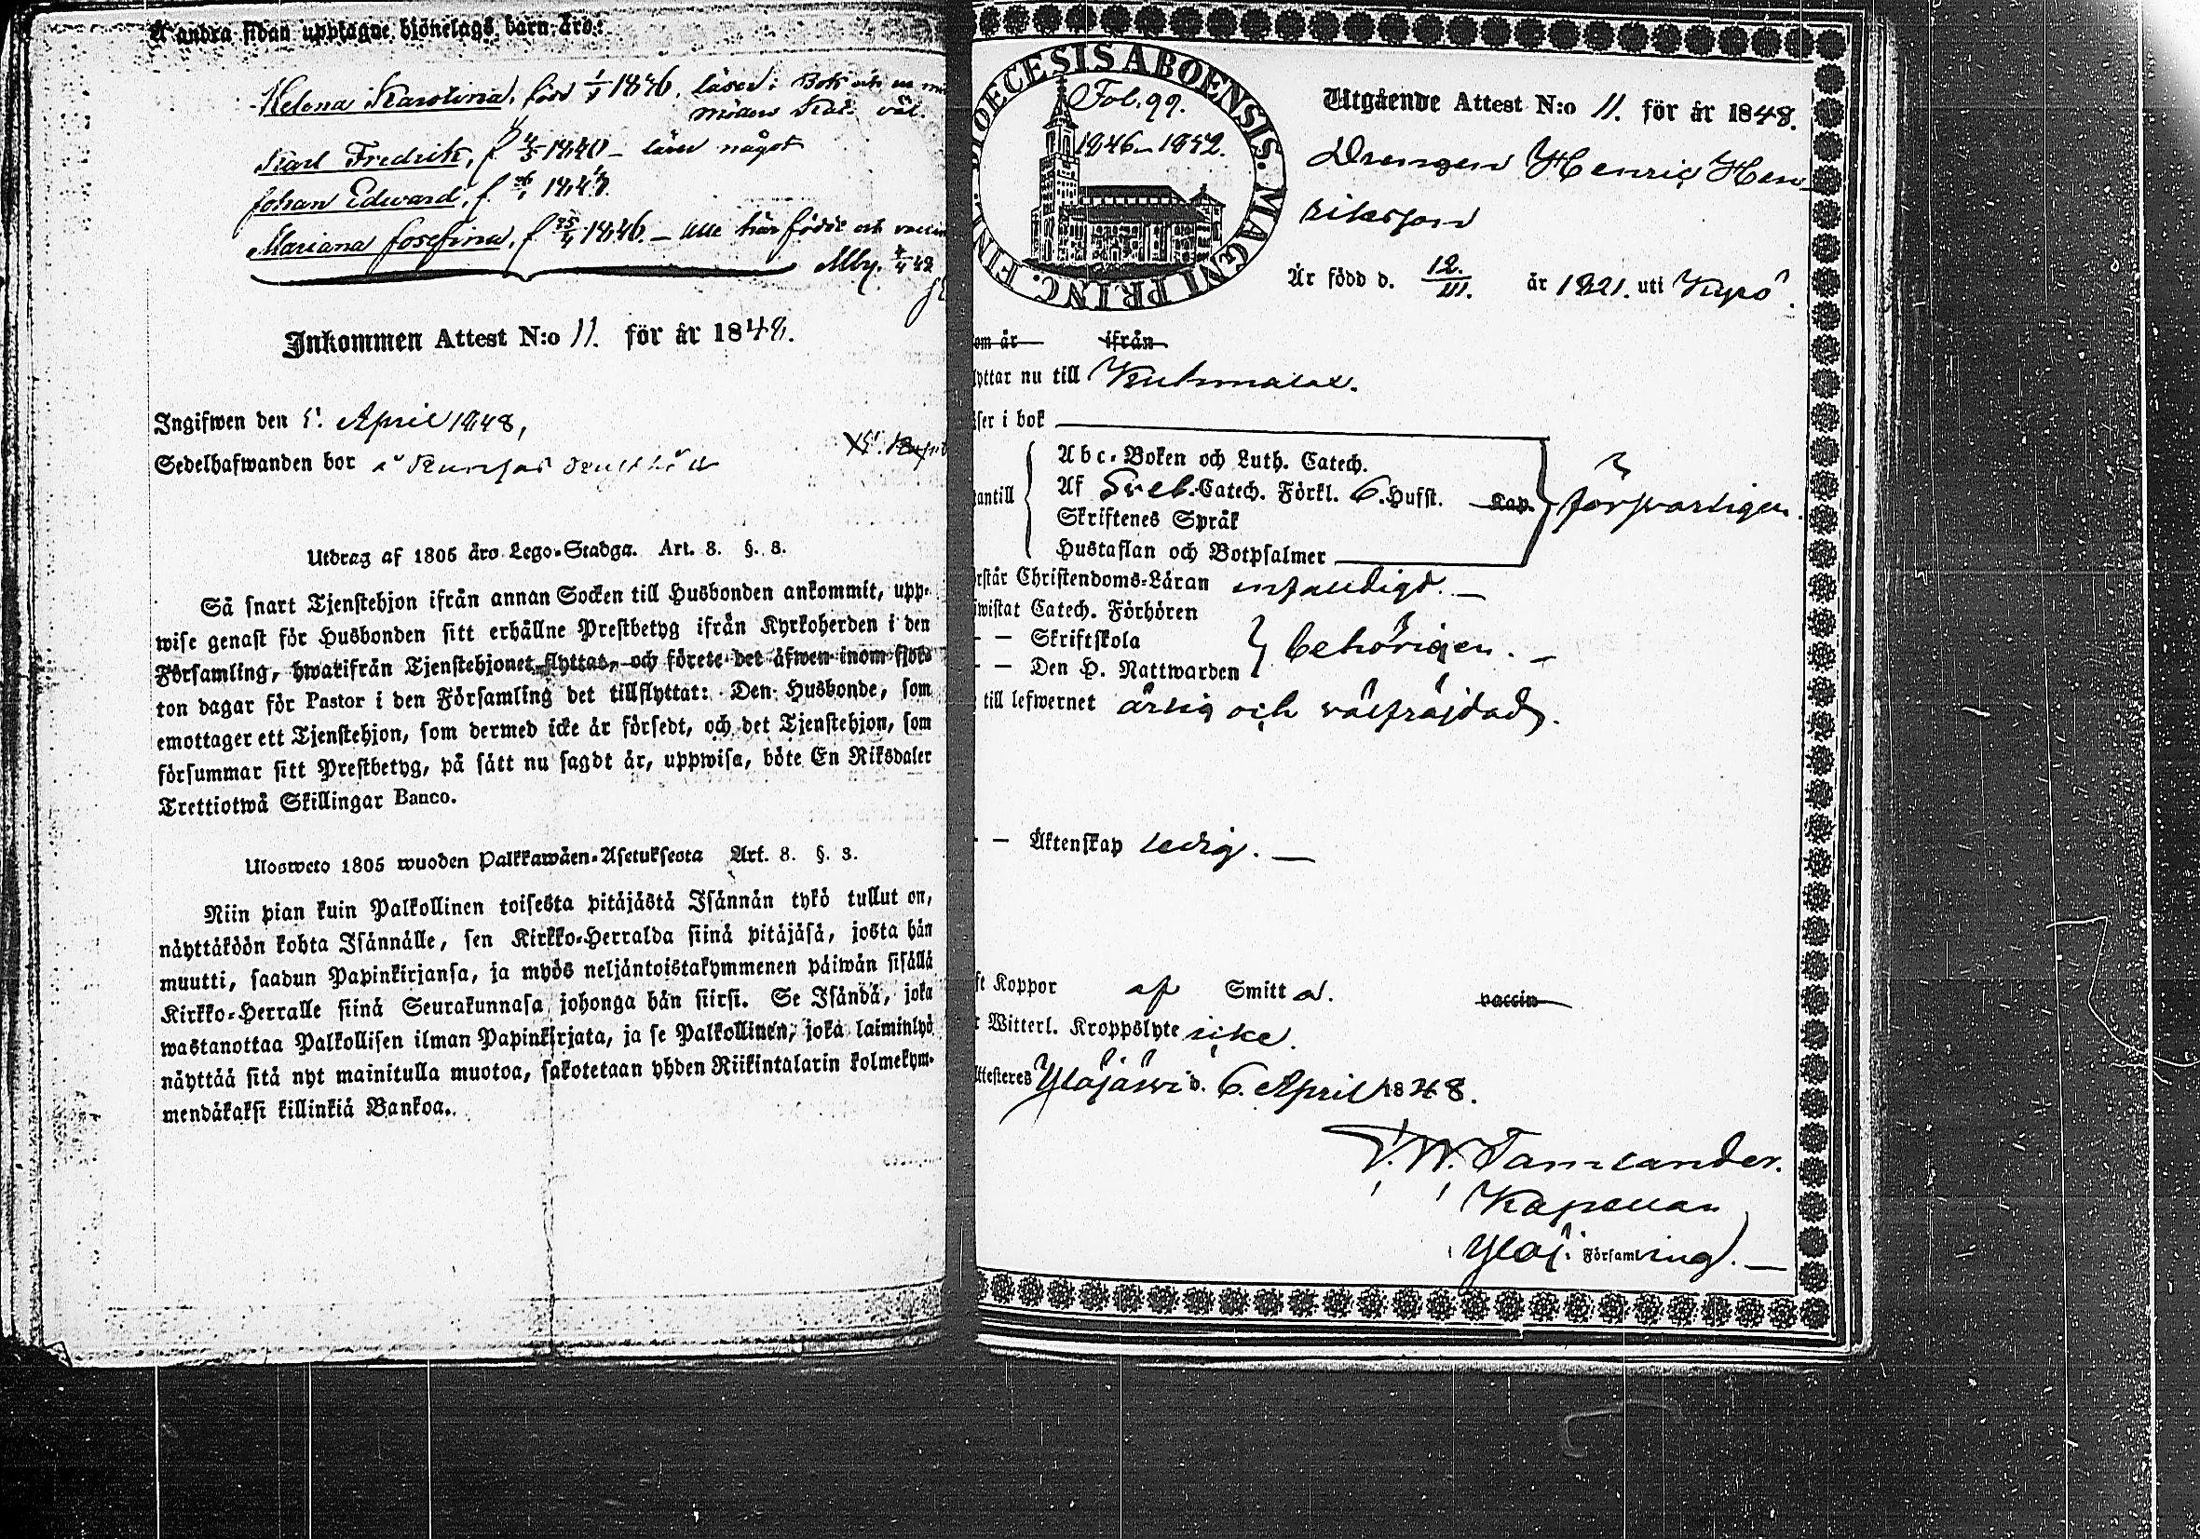 Å andra sidan upptagne hjonelags barn äro:
Helena Karolina, född 1/1 1836, läser i Bok
Karl Fredrik, f. 4/5 1840 – läser något
Johan Edward, f. 1843
Mariana Josefina, f. 25/4 1846. – Alla här födde och
Inkommen Attest N:o 11. för år 1848.
Ingifwen den April 1848,
Sedelhafwanden bor i
Utdrag af 1805 års Lego-Stadga. Art. 8. §. 3.
Så snart Tjenstehjon ifrån annan Socken till Husbonden ankommit, upp-
wise genast för Husbonden sitt erhållne Prestbetyg ifrån Kyrkoherden i den
Församling, hwarifrån Tjenstehjonet flyttas, och förete det äfwen inom fjor-
ton dagar för Pastor i den Församling det tillflyttat: Den Husbonde, som
emottager ett Tjenstehjon, som dermed icke är försedt, och det Tjenstehjon, som
försummar sitt Prestbetyg, på sätt nu sagdt är, uppwisa, böte En Riksdaler
Trettiotwå Skillingar Banco.
Ulosweto 1805 wuoden Palkkawäen-Asetuksesta Art. 8. §. 3.
Niin pian kuin Palkollinen toisesta pitäjästä Isännän tykö tullut on,
näyttäköön kohta Isännälle, sen Kirkko-Herralda siinä pitäjäsä, josta hän
muutti, saadun Papinkirjansa, ja myös neljäntoistakymmenen päiwän sisällä
Kirkko-Herralle siinä Seurakunnasa johonga hän siirsi. Se Isändä, joka
wastanottaa Palkollisen ilman Papinkirjata, ja se Palkollinen, joka laiminlyö
näyttää sitä nyt mainitulla muotoa, sakotetaan yhden Riikintalarin kolmekym-
mendäkaksi killinkiä Bankoa.
DIOECESIS ABOENSIS. MAGNI PRINC. FINL.
Fol. 99.
1846–1852.
Utgående Attest N:o 11. för år 1848.
Drengen Henric Hen-
riksson
Är född d. 12./III. år 1821. uti Kyrö.
om år ifrån
lyttar nu till Kuhmalax.
äser i bok
antill
Abc-Boken och Luth. Catech.
Af Sveb. Catech. Förkl. 6. Hufst. Kap.
Skriftenes Språk
Hustaflan och Botpsalmer
försvarligen.
rstår Christendoms-Läran enfaldigt. –
iwistat Catech. Förhören
– – Skriftskola
– – Den H. Nattwarden
behörigen. –
till lefwernet ärlig och välfräjdad.
– – Äktenskap ledig. –
ft Koppor af Smitta. vaccin
r Witterl. Kroppslyte icke.
Attesteres Ylöjärvi d. 6. April 1848.
Tamlander.
Kapellan
Ylöj. Församling. –